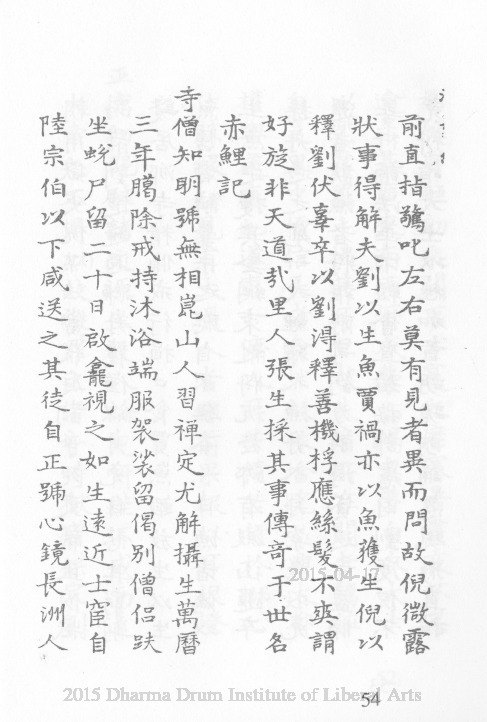 前直指驕叱左右莫有見者異而問故倪微露
狀事得解夫劉以生魚賈禍亦以魚獲生倪以
釋劉伏辜卒以劉得釋善機桴應絲髮不爽謂
好旋非天道哉里人張生採其事傳奇于世名
赤鯉記
寺僧知明號無相崑山人習禪定尤解攝生萬曆
三年臈除戒持沐浴端服袈裟留偈別僧侶趺
坐蛻尸留二十日啟龕視之如生遠近士宦自
陸宗伯以下咸送之其徒自正號心鏡長洲人
2015-04-17
54
2015 Dharma Drum Institute of Liberal Arts